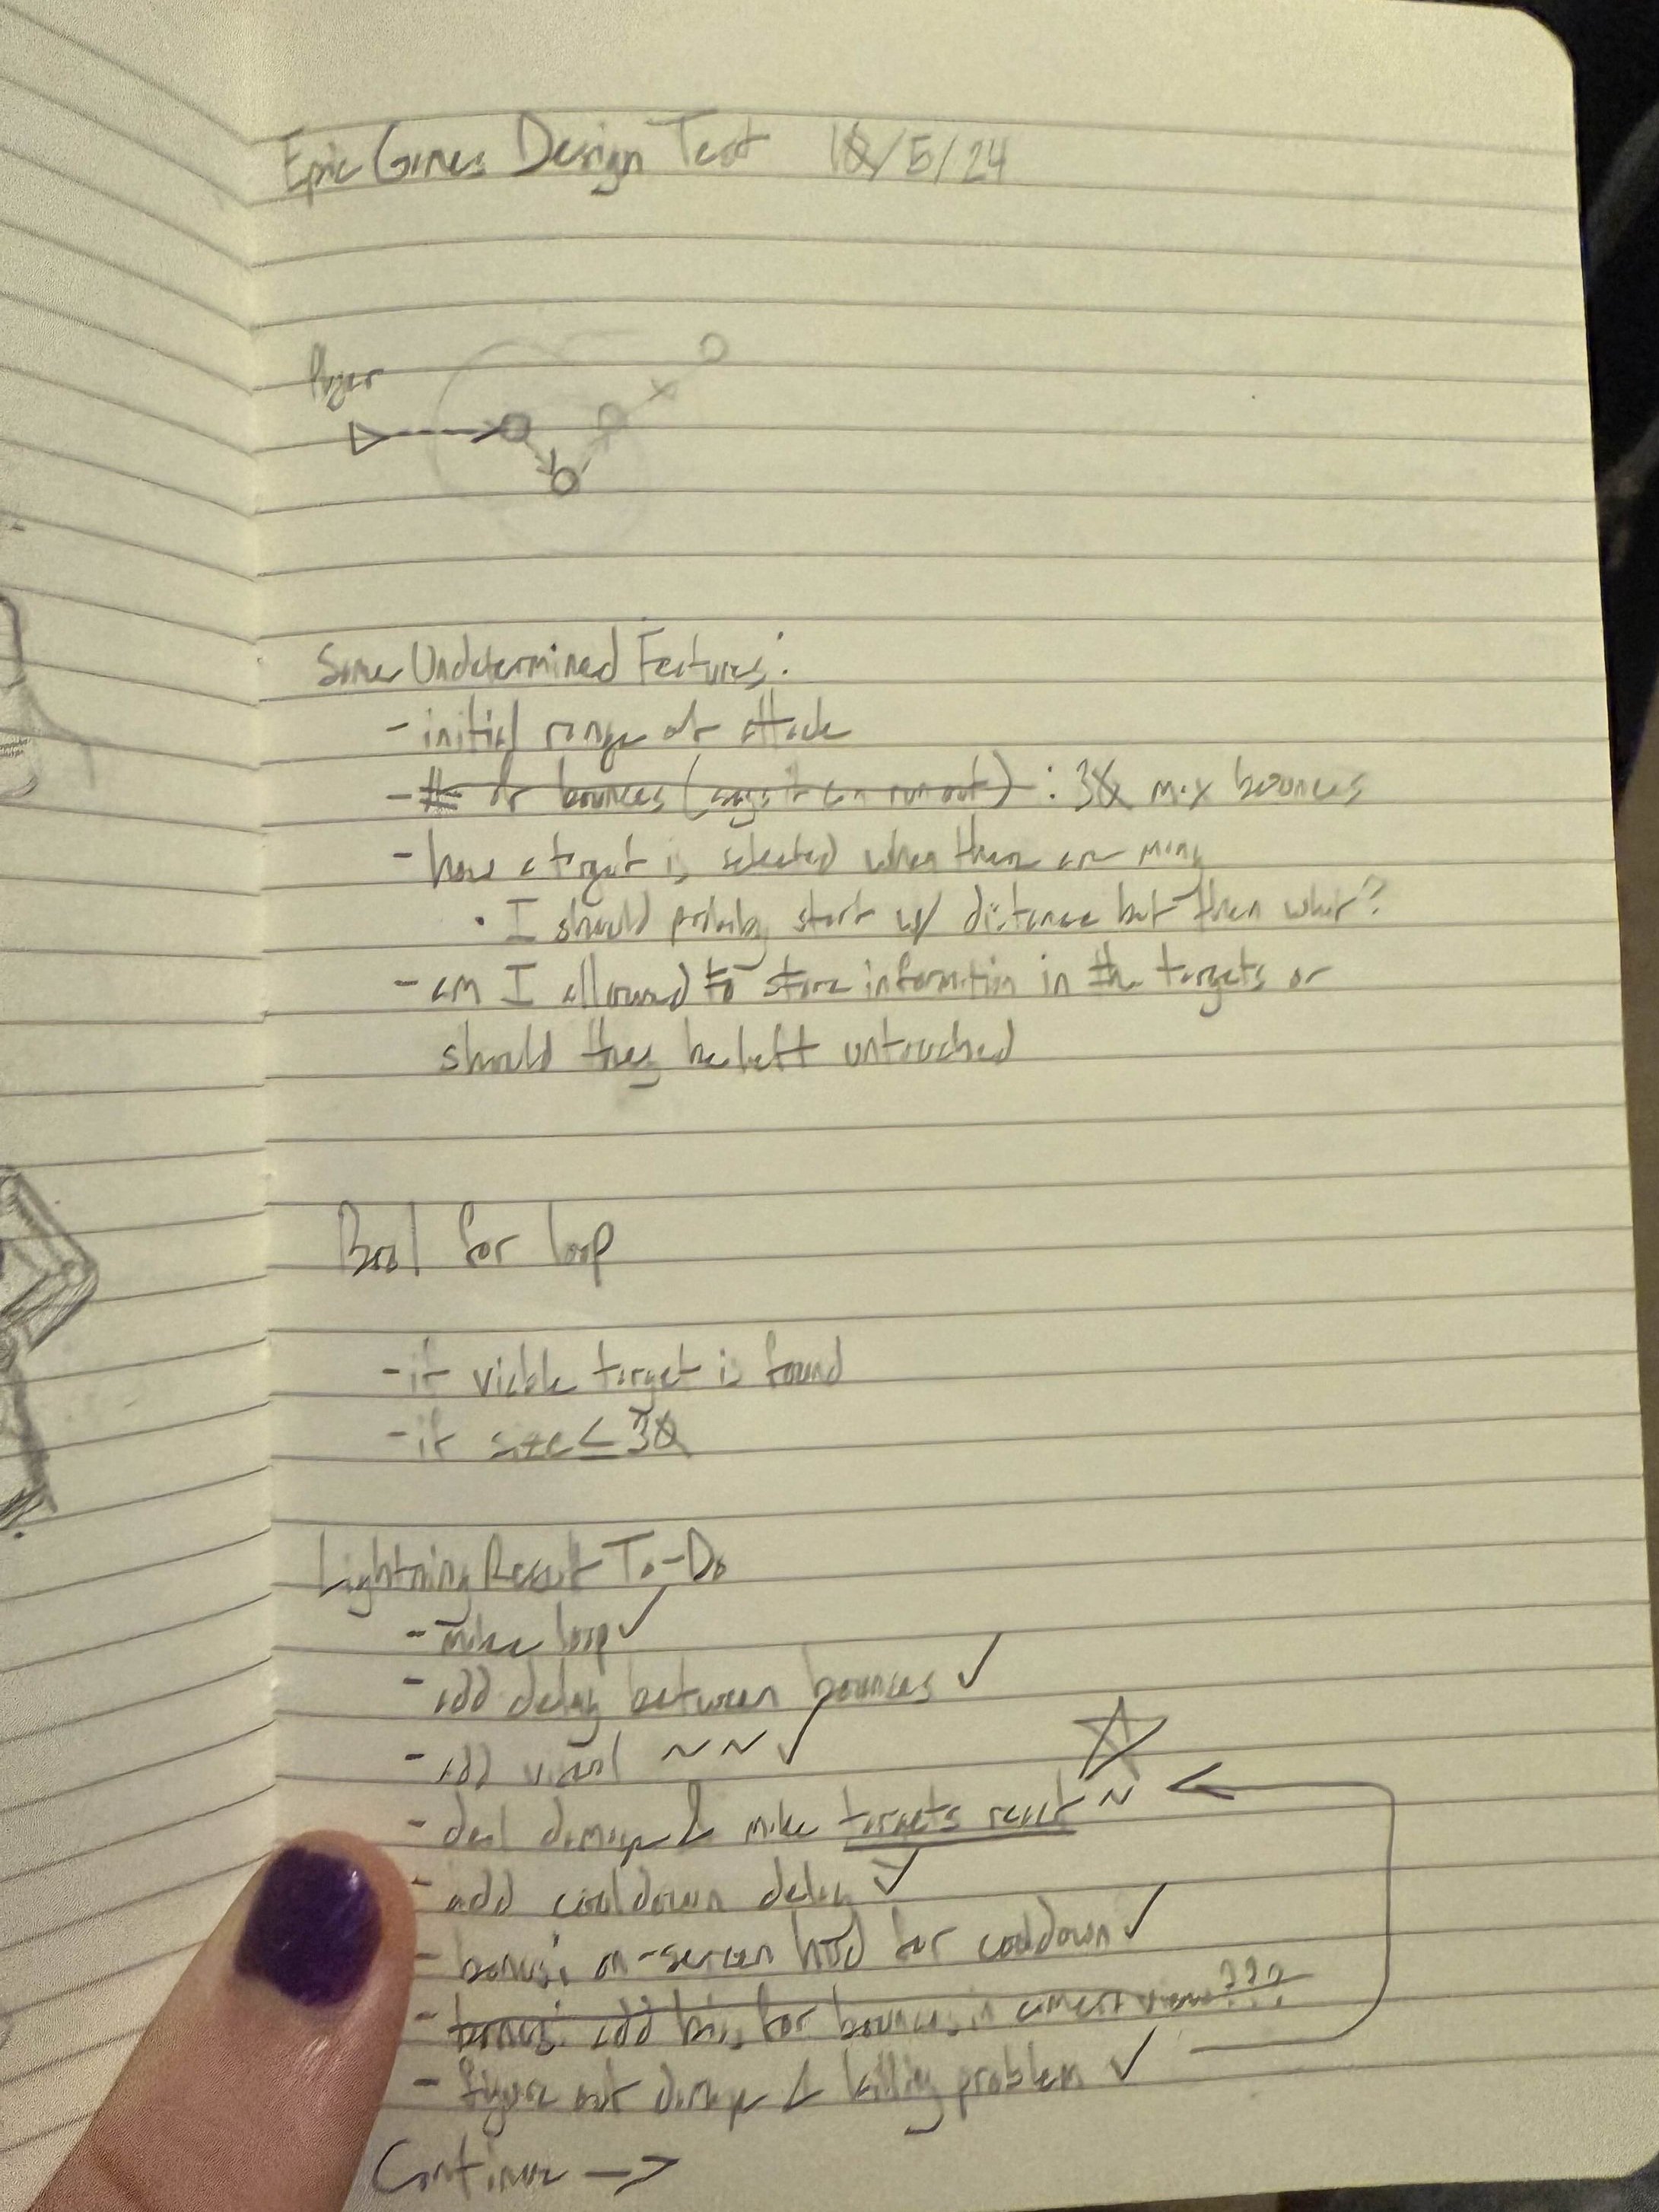 Epic Games Design Test 10/5/24
Player
Some Undetermined Features:
- initial range of attack
- # of bounces (says it can run out) : 30 max bounces
- how a target is selected when there are many
• I should probably start w/ distance but then what?
- am I allowed to store information in the targets or
should they be left untouched
Bool for loop
- if viable target is found
- if size ≤ 30
Lightning Result To-Do
- make loop ✓
- add delay between bounces ✓
- add visual ~ ~ ✓
- deal damage & make targets react ~
- add cooldown delay ✓
- bonus: on-screen hud for cooldown ✓
- bonus: add bias for bounces in camera view???
- figure out damage & killing problem ✓
Continue -->